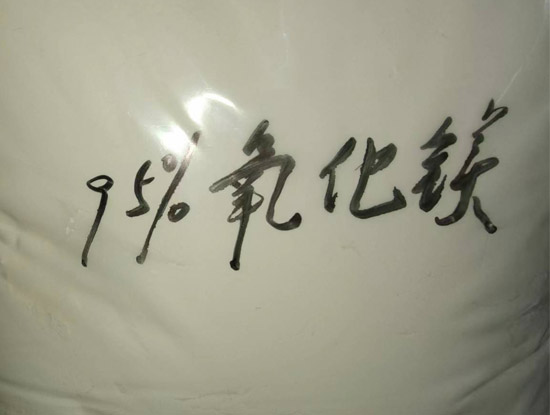 95%氧化镁